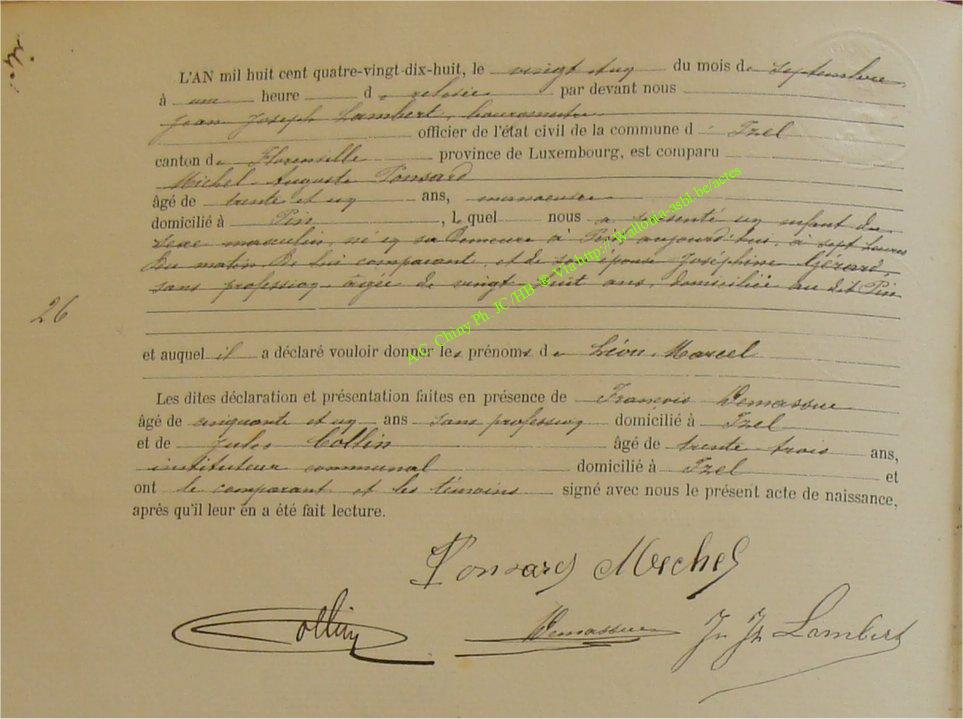 L'AN mil huit cent quatre-vingt-dix-huit, le vingt et un du mois de septembre
à une heure d e relevée par devant nous
Jean Joseph Lambert, bourgmestre
officier de l'état civil de la commune d' Izel
canton de Florenville province de Luxembourg, est comparu
Michel Auguste Ponsard
âgé de trente et un ans, manoeuvre
domicilié à Pin, L quel nous a présenté un enfant du
sexe masculin, né en sa demeure à Pin aujourd'hui, à sept heures
du matin de lui comparant et de son épouse Joséphine Gérard,
sans profession âgée de vingt huit ans, domiciliée au dit Pin
26
et auquel il a déclaré vouloir donner les prénoms de Léon Marcel
Les dites déclaration et présentation faites en présence de François Demasure
âgé de cinquante et un ans sans profession domicilié à Izel
et de Jules Collin âgé de trente trois ans,
instituteur communal domicilié à Izel et
ont le comparant et les témoins signé avec nous le présent acte de naissance,
après qu'il leur en a été fait lecture.
Ponsard Michel
Collin Demasure J. Jh Lambert
A.G. Chiny Ph. JC /HB & Via http:// Wallonia-asbl.be/actes